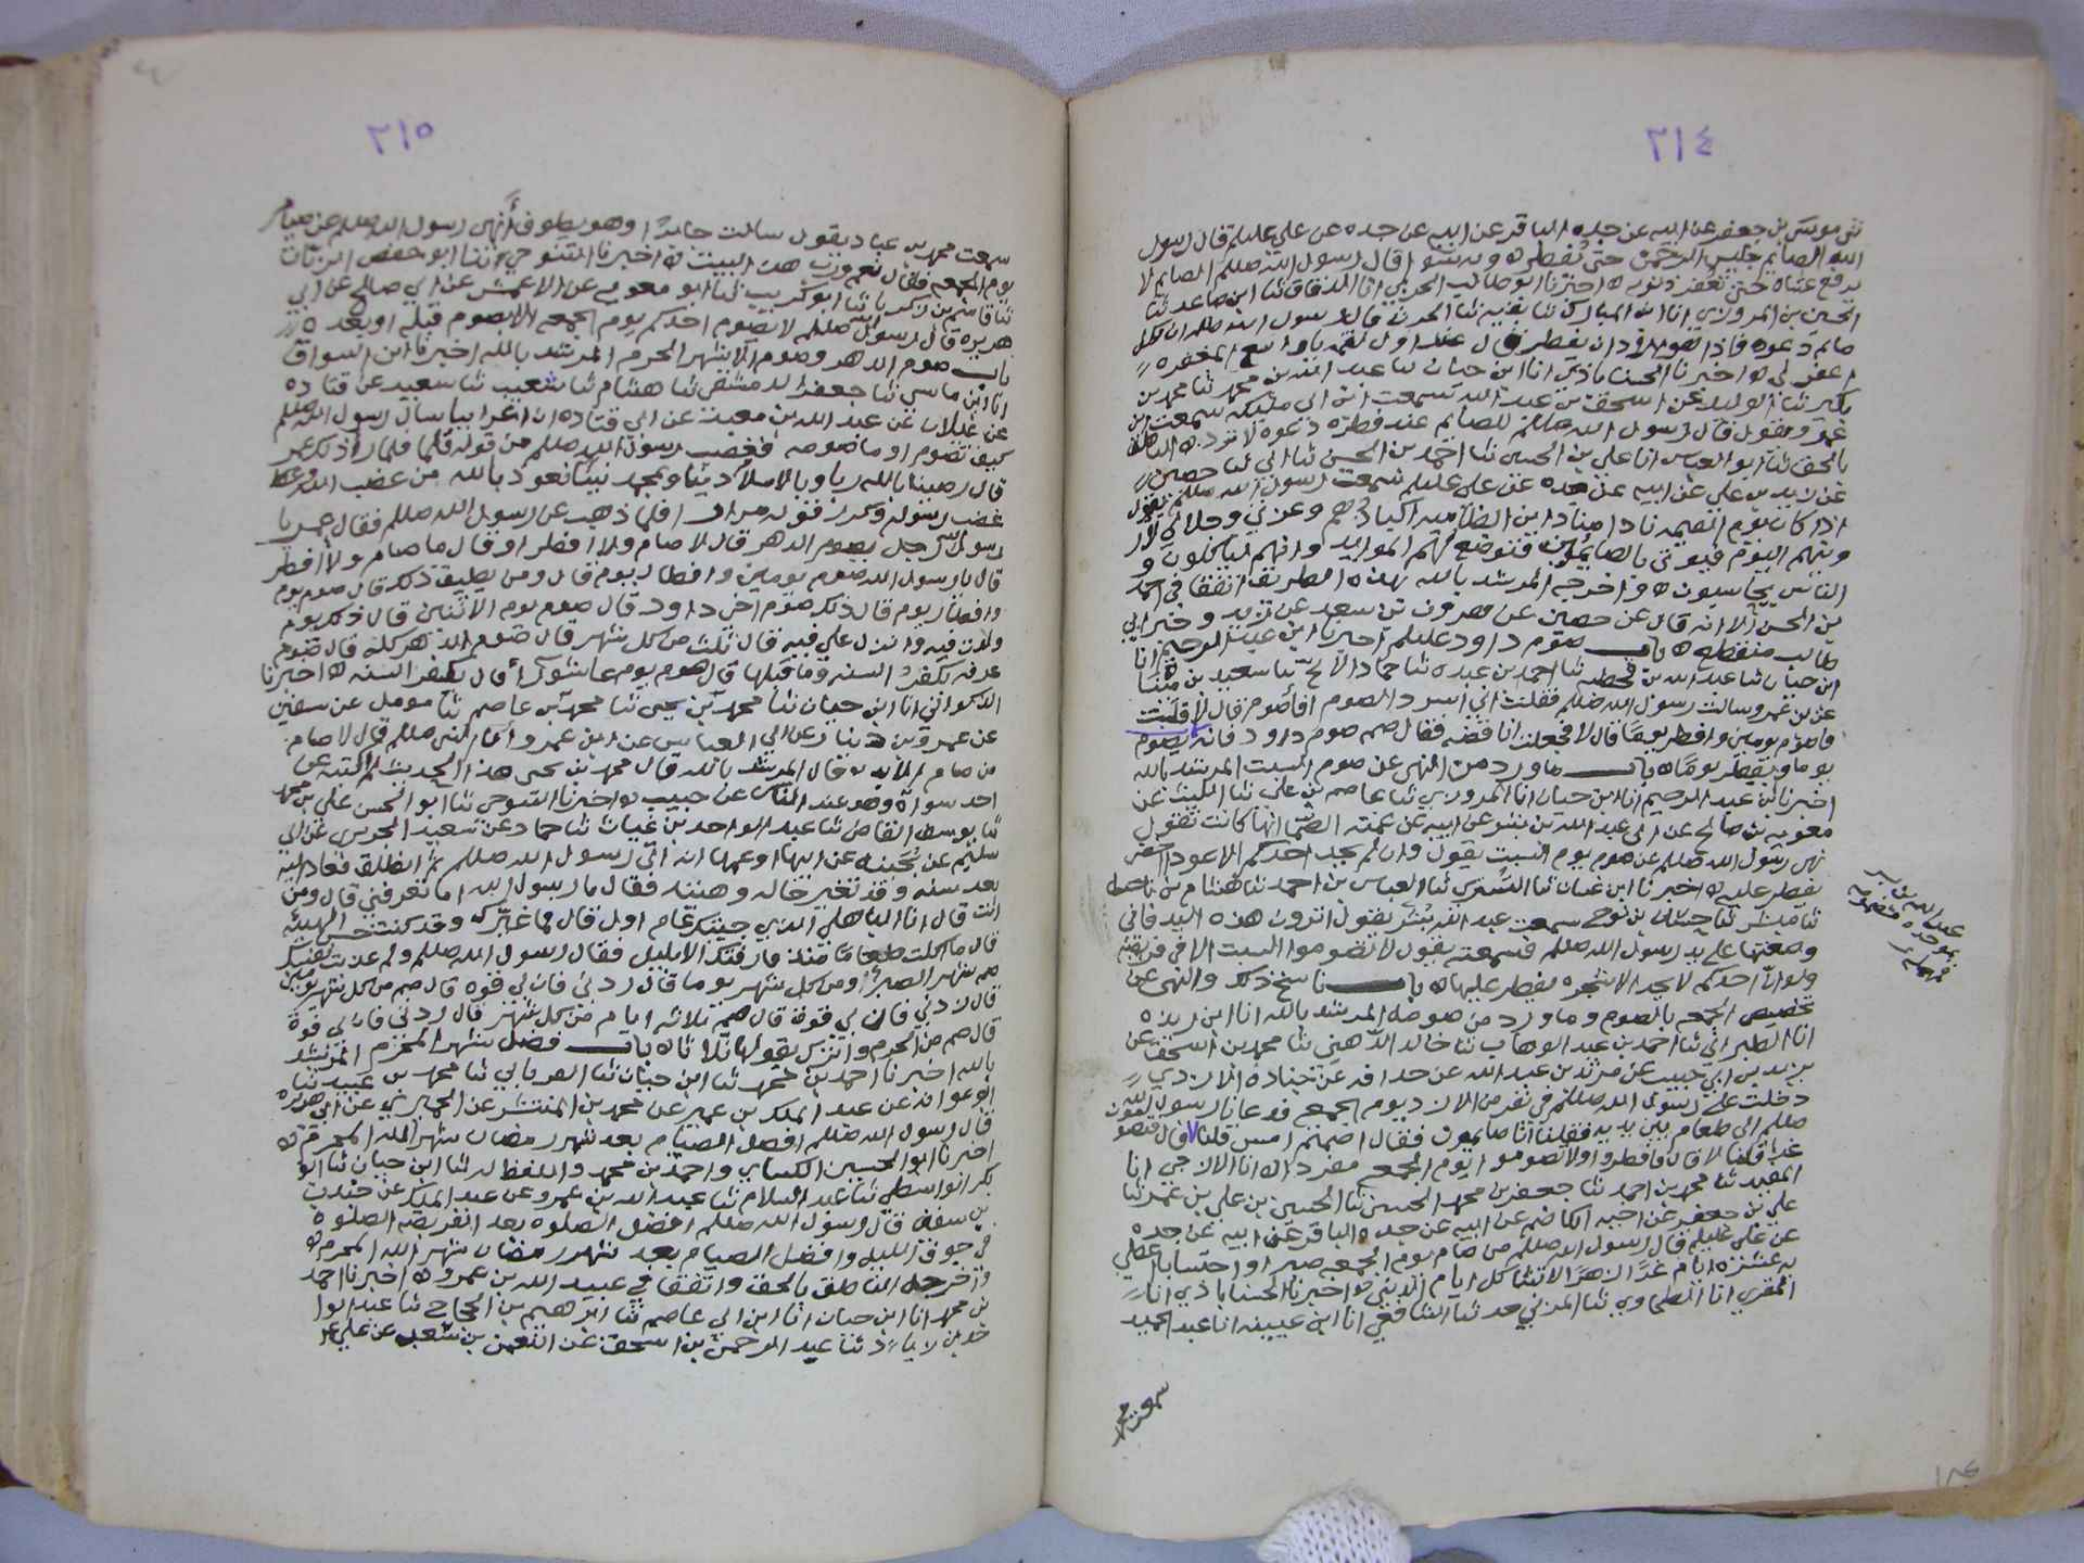 ٢١٤
ثنى موسى بن جعفر عن ابيه عن جده الباقر عن ابيه عن جده عن علي عليلم قال رسول
الله الصايم جليس الرحمن حتى يفطر ه وبه قال رسول الله صللم الصايم لا
ترفع عشاه حتى تغفر ذنوبه ه اخبرنا ابو طالب الحربي انا الدقاق ثنا ابن صاعد ثنا
الحسين بن المروزي انا ابن المبارك ثنا بقيه ثنا الحرث قال رسول الله صللم ان لكل
صايم دعوه فاذا اراد ان يفطر فقل عند اول لقمه يا واسع المغفره
اغفر لي ه اخبرنا الحسناباذي انا ابن حيان ثنا عبد الله بن محمد ثنا محمد بن
بكير ثنا الوليد عن اسحق بن عبد الله سمعت ابن ابي مليكه سمعت ابن
عمرو يقول قال رسول الله صللم للصايم عند فطره دعوه لا ترد ه الناطق
بالحق ثنا ابو العباس انا علي بن الحسين ثنا احمد بن الحسن ثنا ابي ثنا حصين
عن زيد بن علي عن ابيه عن جده عن علي عليلم سمعت رسول الله صللم يقول
اذا كان يوم القيمه نادا مناد اين الظاميه اكبادهم وعزتي وجلالي لارو
وينهم اليوم فيوتى بالصايمين فتوضع لهم الموايد وانهم لياكلون و
الناس يحاسبون ه واخرجه المرشد بالله بهذه الطريق اتفقا في احمد
بن الحسن الا انه قال عن حصين عن هرون بن سعد عن زيد وخبر ابي
طالب منقطع ه باب صوم داود عليلم اخبرنا ابن عبد الرحيم انا
ابن حيان ثنا عبد الله بن قحطبه ثنا احمد بن عبده ثنا حماد الابح ثنا سعيد بن مينا
عن بن عمرو سالت رسول الله صللم فقلت اني اسرد الصوم افاصوم قال لا قلت
فاصوم يومين وافطر يوما قال لا فجعلت اناقضه فقال صم صوم داود فانه يصوم
يوما ويفطر يوما ه باب ما ورد من النهي عن صوم السبت المرشد بالله
اخبرنا ابن عبد الرحيم انا ابن حيان انا المروزي ثنا عاصم بن علي ثنا الليث عن
معويه بن صالح عن ابي عبد الله بن بشر عن ابيه عن عمته الصما انها كانت تقول
نهى رسول الله صللم عن صوم يوم السبت يقول وان لم يجد احدكم الا عودا اخضر
يفطر عليه ه اخبرنا ابن غسان ثنا التستري ثنا العباس بن احمد ثنا هشام بن
ثنا مبشر ثنا حسان بن نوح سمعت عبد الله بن بشر يقول اترون هذه اليد فاني
وضعتها على يد رسول الله صللم فسمعته يقول لا تصوموا السبت الا في فريضه
ولو ان احدكم لا يجد الا شجره يفطر عليها ه باب ناسخ ذلك والنهي عن
تخصيص الجمعه بالصوم وما ورد من صومه المرشد بالله انا ابن ريذه
انا الطبراني ثنا احمد بن عبد الوهاب ثنا خالد الذهبي ثنا محمد بن اسحق عن
يزيد بن ابي حبيب عن مرثد بن عبد الله عن حذافه عن جناده الازدي
دخلت على رسول الله صللم في نفر من الازد يوم الجمعه فدعانا رسول الله
صللم الى طعام بين يديه فقلنا انا صايمون فقال اصمتم امس قلنا لا قال فتصومون
غدا قلنا لا قال فافطروا ولا تصوموا يوم الجمعه مفردا ه انا الازجي انا
المفيد ثنا محمد بن احمد ثنا جعفر بن محمد الحسيني ثنا الحسين بن علي بن عمر ثنا
علي بن جعفر عن اخيه الكاظم عن ابيه عن جده الباقر عن ابيه عن جده
عن علي عليلم قال رسول الله صللم من صام يوم الجمعه صبرا واحتسابا اعطي
به عشره ايام غرا زهرا لا تشاكل ايام الدنيا ه اخبرنا الحسناباذي انا
المقري انا الطحاوي ثنا المزني حدثنا الشافعي انا ابن عيينه انا عبد الحميد
سمعت محمد
عبد الله بن بشر
بموحده مضمومه
فمهمله
١٣٤
٢١٥
سمعت محمد بن عباد يقول سالت جابرا وهو يطوف أنهى رسول الله صللم عن صيام
يوم الجمعه فقال نعم ورب هذا البيت ه اخبرنا التنوخي انبا ابو حفص الزيات
ثنا قاسم بن زكريا ثنا ابو كريب ثنا ابو معويه عن الاعمش عن ابي صالح عن ابي
هريره قال رسول الله صللم لا يصوم احدكم يوم الجمعه الا يصوم قبله او بعده ه
باب صوم الدهر وصوم الاشهر الحرم المرشد بالله اخبرنا ابن السواق
انا ابن ماسي ثنا جعفر الدمشقي ثنا هشام ثنا شعيب ثنا سعيد عن قتاده
عن غيلان عن عبد الله بن معبد عن ابي قتاده ان اعرابيا سال رسول الله صللم
كيف تصوم او ما صومه فغضب رسول الله صللم من قوله فلما راذلك عمر
قال رضينا بالله ربا وبالاسلام دينا وبمحمد نبيا نعوذ بالله من غضب الله و
غضب رسوله وكرر قوله مرار فلما ذهب عن رسول الله صللم فقال عمر يا
رسول الله رجل يصوم الدهر قال لا صام ولا افطر او قال ما صام ولا افطر
قال يا رسول الله صوم يومين وافطار يوم قال ومن يطيق ذلك قال صوم يوم
وافطار يوم قال ذلك صوم اخي داود قال صوم يوم الاثنين قال ذلك يوم
ولدت فيه وانزل علي فيه قال ثلث من كل شهر قال صوم الدهر كله قال صوم
عرفه يكفر السنه وما قبلها قال صوم يوم عاشورا قال يكفر السنه ه اخبرنا
الذكواني انا ابن حيان ثنا محمد بن يحيى ثنا محمد بن عاصم ثنا مومل عن سفين
عن عمرو بن دينار عن ابي العباس عن ابن عمرو أن النبي صللم قال لا صام
من صام الابد ه قال المرشد بالله قال محمد بن يحيى هذا الحديث لم اكتبه عن
احد سواه وهو عند الناس عن حبيب ه اخبرنا التنوخي ثنا ابو الحسن علي بن محمد
ثنا يوسف القاضي ثنا عبد الواحد بن غياث ثنا حماد عن سعيد الجريري عن ابي
سليم عن مجيبه عن ابيها او عمها انه اتى رسول الله صللم ثم انطلق فعاد اليه
بعد سنه وقد تغير حاله وهيئته فقال يا رسول الله اما تعرفني قال ومن
انت قال انا الباهلي الذي جيتك عام اول قال فما غيرك وقد كنت حسن الهيئه
قال ما اكلت طعاما منذ فارقتك الا بليل فقال رسول الله صللم ولم عذبت نفسك
صم شهر الصبر ومن كل شهر يوما قال زدني فان لي قوه قال صم من كل شهر يومين
قال زدني فان لي قوه قال صم ثلاثه ايام من كل شهر قال زدني فان لي قوه
قال صم من الحرم واترك يقولها ثلاثا ه باب فضل شهر المحرم المرشد
بالله اخبرنا احمد بن محمد ثنا ابن حيان ثنا الفريابي ثنا محمد بن عبيد ثنا
ابو عوانه عن عبد الملك بن عمير عن محمد بن المنتشر عن الحميري عن ابي هريره
قال رسول الله صللم افضل الصيام بعد شهر رمضان شهر الله المحرم ه
اخبرنا ابو الحسين الكسايي واحمد بن محمد واللفظ له ثنا ابن حيان ثنا ابو
بكر الواسطي ثنا عبد السلام ثنا عبيد الله بن عمرو عن عبد الملك عن جندب
بن سفين قال رسول الله صللم افضل الصلوه بعد الفريضه الصلوه
في جوف الليل وافضل الصيام بعد شهر رمضان شهر الله المحرم ه
واخرجه الناطق بالحق واتفقا في عبيد الله بن عمرو ه اخبرنا احمد
بن محمد انا ابن حيان انا ابن ابي عاصم ثنا ابرهيم بن الحجاج ثنا عبد الوا
حد بن زياد ثنا عبد الرحمن بن اسحق عن النعمن بن سعد عن علي